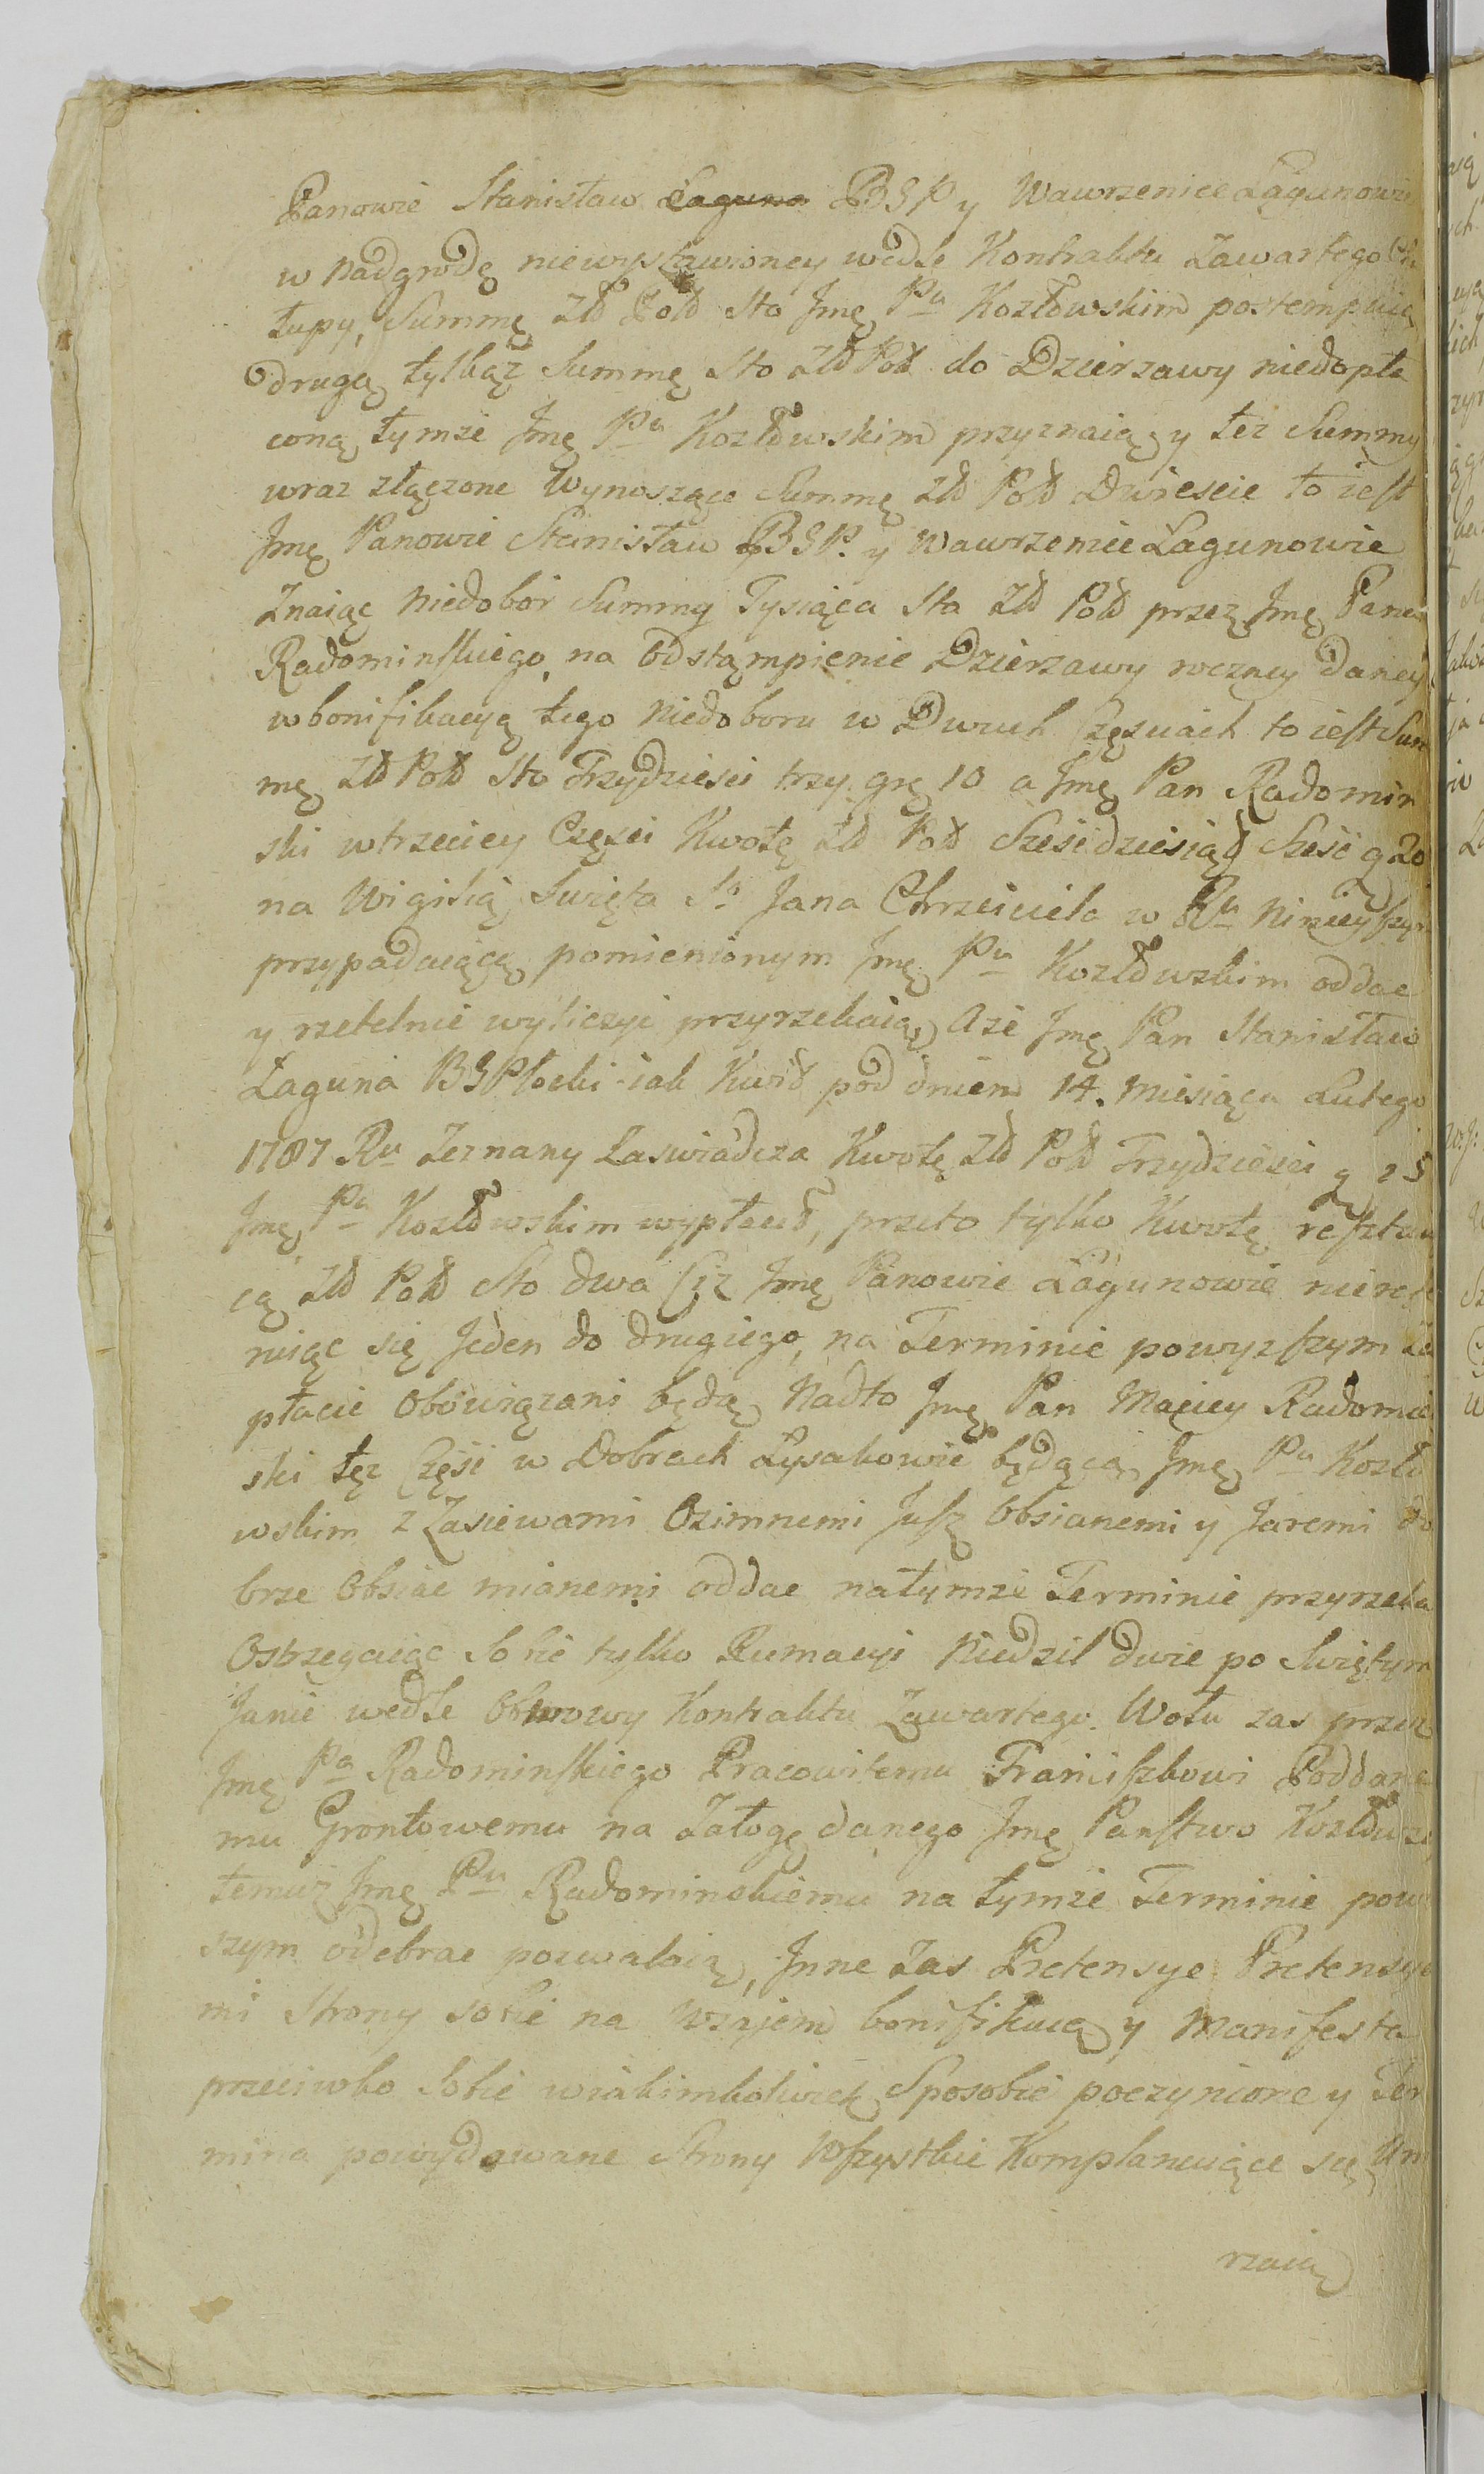 Panowie Stanisław Laguna BSP y Wawrzeniec Lagunowie
w nadgrodę niewystawioney wedle Kontraktu Zawartego Cha
łupy, Summę Zło Pol sto Jmę Pu Kozłowskim postempuią
drugą tylkąz Summę sto Zło Pol do Dzierzawy niedopła
coną tymze Jmę Pu Kozłowskim przyznaią, y tez Summy
wraz złączone wynoszące Summę Zło Pol Dwiescie to iest
Jmę Panowie Stanisław BSP. y Wawrzeniec Lagunowie
Znaiąc niedobór Summy Tysiąca sta Zło Pol przez Jmę Pana
Radominskiego na odstąmpienie Dzierzawy roczney daney
w bonifikacyą tego niedoboru w Dwuch Częsciach to iest Sum
mę Zło Pol sto Trzydziesci trzy grę 10 a Jmę Pan Radomin
ski w trzeciey Częsci Kwotę Zło Pol Szescdziesiąd Szesc g 20
na Wigilią Swięta Sо Jana Chrzciciela w Ru ninieyszym
przypadaiącą pomienionym Jmę Pu Kozłowskim oddac
y rzetelnie wyliczyc przyrzekaią, A ze Jmę Pan Stanisław
Laguna BSPłocki iak Kwit pod dniem 14. Miesiąca Lutego
1787 Ru Zeznany Zaswiadcza Kwotę Zło Pol Trzydziesci g 15
Jmę Pu Kozłowskim wypłacił, przeto tylko Kwotę resztu
cą Zło Pol Sto dwa Ciz Jmę Panowie Lagunowie
się Jeden do drugiego, na Terminie powyzszym Za
płacic Obowiązani będą, Nadto Jmę Pan Maciey Radomin
ski tęz Częsc w Dobrach Łysakowie będącą, Jmę Pu Kozło
wskim z Zasiewami Ozimnemi Jusz Obsianemi y Jaremi do
brze Obsiac mianemi oddac na tymze Terminie przyrzeka
Ostrzegaiąc sobie tylko Rumacyi Niedzil dwie po Swiętym
Janie wedle Obmowy Kontraktu Zawartego. Wołu zas przez
Jmę Pa Radominskiego Pracowitemu Franciszkowi Poddane
mu Grontowemu na Załogę danego Jmę Panstwo Kozłowscy
temuz Jmę Pu Radominskiemu na tymze Terminie powy
szym odebrac pozwalaią, Jnne Zas Pretensye Pretensya
mi Strony sobie na wzajem bonifikuią y Manifesta
przeciwko Sobie w iakimkolwiek Sposobie poczynione y Ter
mina powydawane Strony Wszystkie Komplanuiące się Um
rzaią